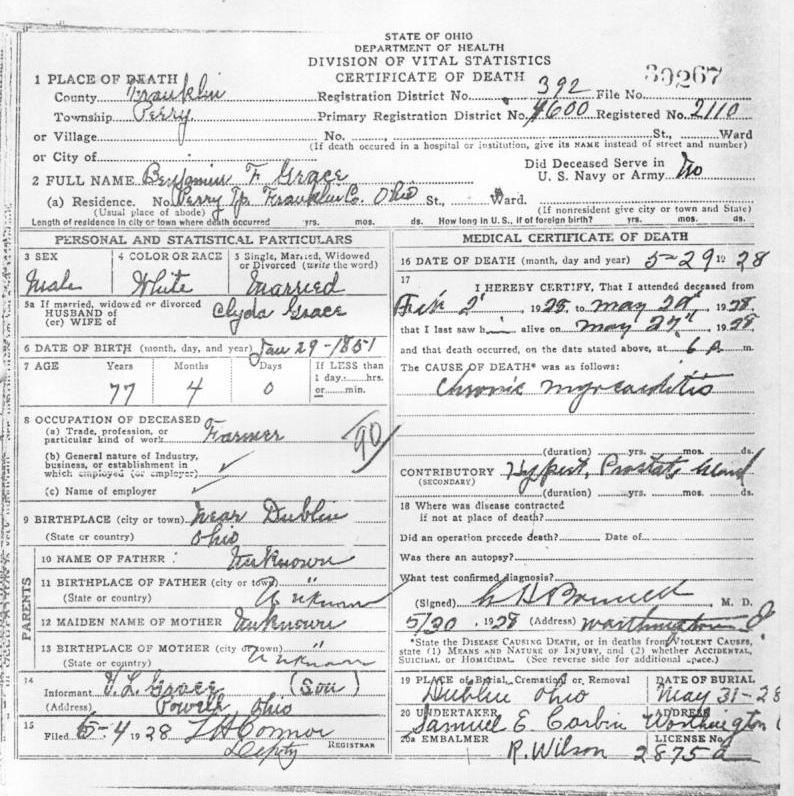 STATE OF OHIO
DEPARTMENT OF HEALTH
DIVISION OF VITAL STATISTICS
CERTIFICATE OF DEATH
39267
1 PLACE OF DEATH
County Franklin Registration District No. 392 File No.
Township Perry Primary Registration District No. 4600 Registered No. 2110
or Village No. St., Ward
(If death occurred in a hospital or institution, give its NAME instead of street and number)
or City of
Did Deceased Serve in
U. S. Navy or Army No
2 FULL NAME Benjamin F. Grace
(a) Residence. No. Perry Tp. Franklin Co. Ohio St., Ward.
(Usual place of abode) (If nonresident give city or town and State)
Length of residence in city or town where death occurred yrs. mos. ds. How long in U. S., if of foreign birth? yrs. mos. ds.
PERSONAL AND STATISTICAL PARTICULARS
3 SEX 4 COLOR OR RACE 5 Single, Married, Widowed
or Divorced (write the word)
Male White Married
5a If married, widowed or divorced
HUSBAND of
(or) WIFE of Clyda Grace
6 DATE OF BIRTH (month, day, and year) Jan 29-1851
7 AGE Years Months Days If LESS than
1 day, hrs.
or min.
77 4 0
8 OCCUPATION OF DECEASED
(a) Trade, profession, or
particular kind of work Farmer
90
(b) General nature of Industry,
business, or establishment in
which employed (or employer)
(c) Name of employer
9 BIRTHPLACE (city or town) Near Dublin
(State or country) Ohio
PARENTS
10 NAME OF FATHER Unknown
11 BIRTHPLACE OF FATHER (city or town) "
(State or country) Unknown
12 MAIDEN NAME OF MOTHER Unknown
13 BIRTHPLACE OF MOTHER (city or town) "
(State or country) Unknown
14
Informant L. Grace (Son)
(Address) Powell, Ohio
15
Filed 6-4 1928 L H Connor
Deputy REGISTRAR
MEDICAL CERTIFICATE OF DEATH
16 DATE OF DEATH (month, day and year) 5-29 19 28
17
I HEREBY CERTIFY, That I attended deceased from
Feb 2", 1928, to May 29", 1928,
that I last saw h alive on May 27", 1928,
and that death occurred, on the date stated above, at 6 A m.
The CAUSE OF DEATH* was as follows:
Chronic Myocarditis
(duration) yrs. mos. ds.
CONTRIBUTORY Hypert, Prostate Gland
(SECONDARY)
(duration) yrs. mos. ds.
18 Where was disease contracted
if not at place of death?
Did an operation precede death? Date of
Was there an autopsy?
What test confirmed diagnosis?
(Signed) M. D.
5/30, 1928 (Address) Worthington O
*State the DISEASE CAUSING DEATH, or in deaths from VIOLENT CAUSES,
state (1) MEANS AND NATURE OF INJURY, and (2) whether ACCIDENTAL,
SUICIDAL or HOMICIDAL. (See reverse side for additional space.)
19 PLACE of Burial, Cremation, or Removal DATE OF BURIAL
Dublin Ohio May 31-28
20 UNDERTAKER ADDRESS
Samuel E. Corbin Worthington
20a EMBALMER LICENSE No.
R. Wilson 2875a